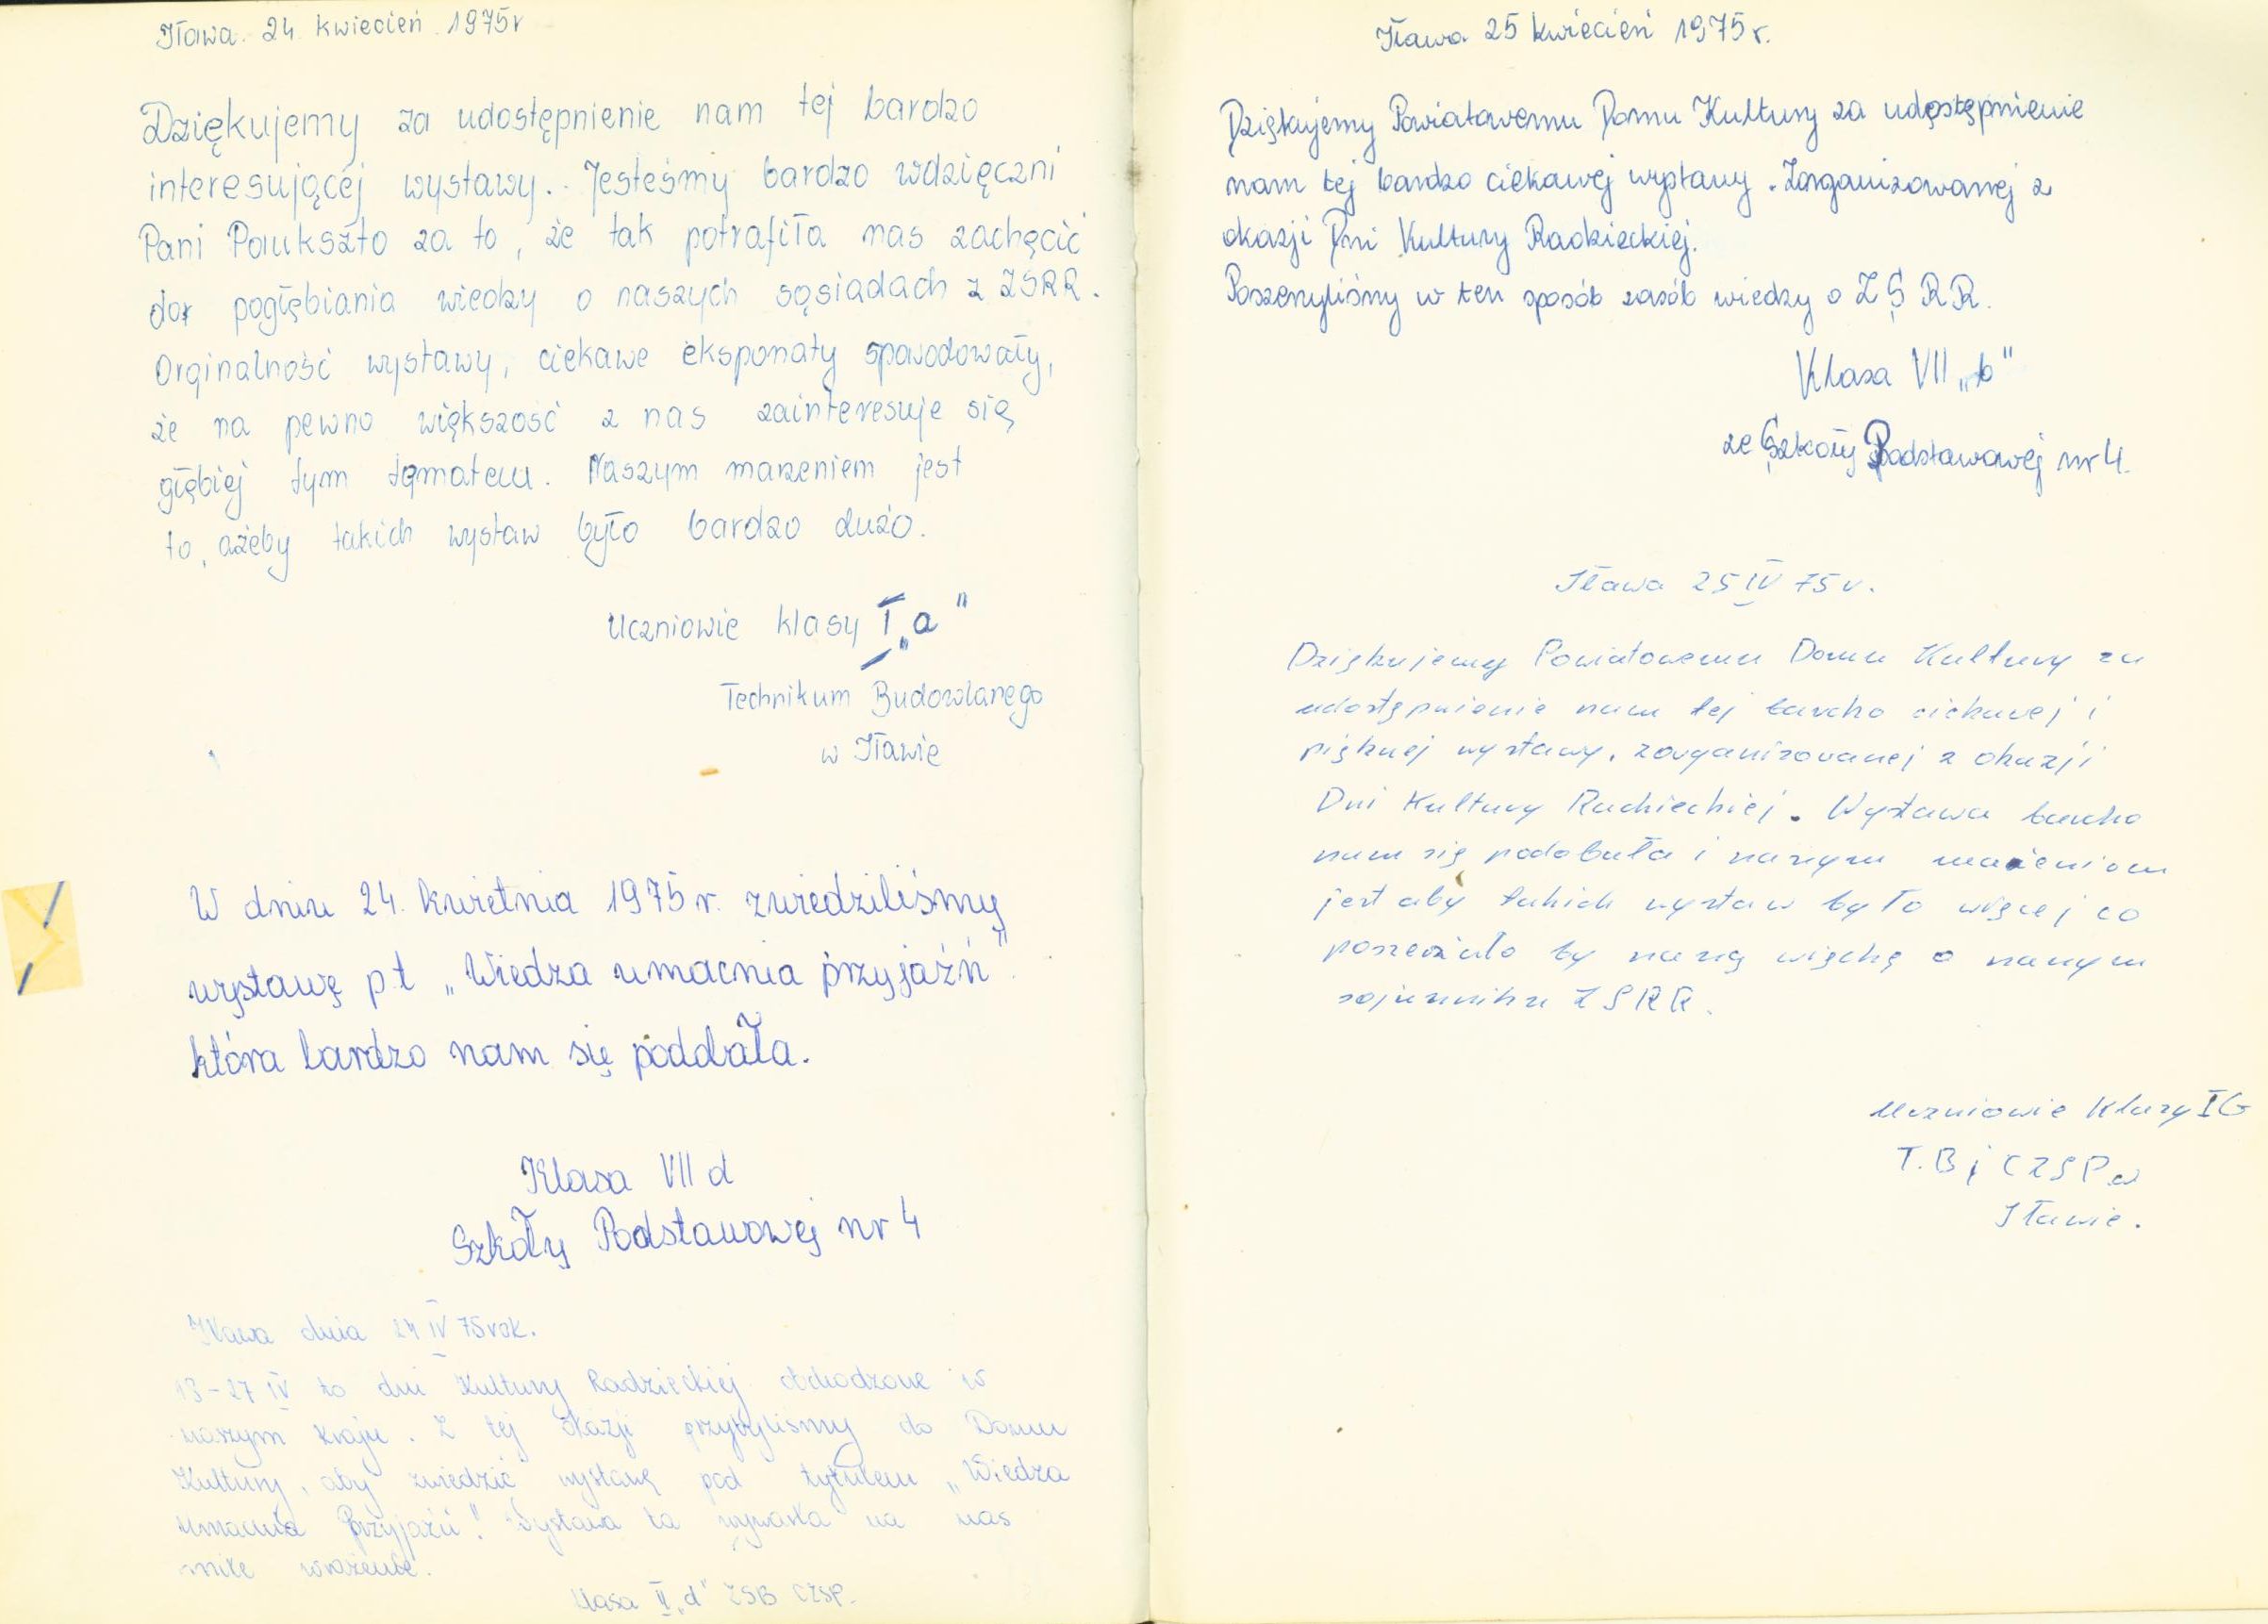 Iława. 24 kwiecień 1975r
Dziękujemy za udostępnienie nam tej bardzo
interesującej wystawy. Jesteśmy bardzo wdzięczni
Pani Paukszto za to, że tak potrafiła nas zachęcić
do pogłębiania wiedzy o naszych sąsiadach z ZSRR.
Orginalność wystawy, ciekawe eksponaty spowodowały,
że na pewno większość z nas zainteresuje się
głębiej tym tematem. Naszym marzeniem jest
to, ażeby takich wystaw było bardzo dużo.
Uczniowie klasy I "a"
Technikum Budowlanego
w Iławie
W dniu 24. kwietnia 1975 r. zwiedziliśmy
wystawę p.t „Wiedza umacnia przyjaźń".
która bardzo nam się poddbała.
Klasa VII d
Szkoły Podstawowej nr 4
Iława dnia 24 IV 75 rok.
13-27 IV to dni Kultury Radzieckiej obchodzone w
naszym kraju. Z tej okazji przybyliśmy do Domu
Kultury, aby zwiedzić wystawę pod tytułem „Wiedza
umacnia Przyjaźń". Wystawa ta wywarła na nas
miłe wrażenie.
klasa II „d" ZSB CZSP.
Iława 25 kwiecień 1975 r.
Dziękujemy Powiatowemu Domu Kultury za udostępnienie
nam tej bardzo ciekawej wystawy. Zorganizowanej z
okazji Dni Kultury Radzieckiej.
Poszerzyliśmy w ten sposób zasób wiedzy o ZSRR.
Klasa VII „b"
ze Szkoły Podstawowej nr 4.
Iława 25 IV 75 r.
Dziękujemy Powiatowemu Domu Kultury za
udostępnienie nam tej bardzo ciekawej i
pięknej wystawy, zorganizowanej z okazji
Dni Kultury Radzieckiej. Wystawa bardzo
nam się podobała i naszym marzeniem
jest aby takich wystaw było więcej co
poszerzało by naszą wiedzę o naszym
sojuszniku ZSRR.
Uczniowie Klasy I G
T.B i CZSP w
Iławie.